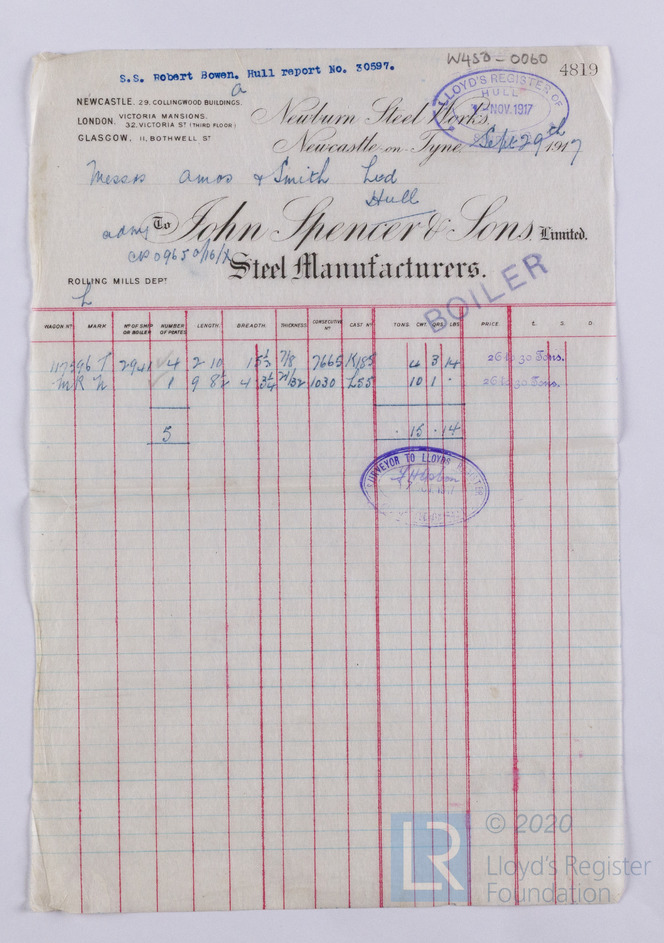 W450-0060
S.S. Robert Bowen. Hull report No. 30597.
a
4819
NEWCASTLE. 29, COLLINGWOOD BUILDINGS.
LONDON. VICTORIA MANSIONS, 32, VICTORIA ST (THIRD FLOOR)
GLASGOW, 11, BOTHWELL ST
LLOYD'S REGISTER OF
HULL
NOV. 1917
Newburn Steel Works,
Newcastle-on-Tyne, Sept 29th 1917
Messrs Amos & Smith Ltd
Hull
To John Spencer & Sons, Limited.
Steel Manufacturers.
ROLLING MILLS DEPT
L
BOILER
WAGON No. MARK No OF SHIP OR BOILER NUMBER OF PLATES LENGTH. BREADTH. THICKNESS. CONSECUTIVE No. CAST No TONS. CWT. QRS. LBS. PRICE. £. S. D.
2941 4 2 10 1 5½ 7/8 7665 K185 4 3 14 26 to 30 Tons.
1 9 8½ 4 3¼ 21/32 1030 L55 10 1 · 26 to 30 Tons.
5 · 15 · 14
SURVEYOR TO LLOYDS REGISTER
© 2020
LR
Lloyd's Register
Foundation